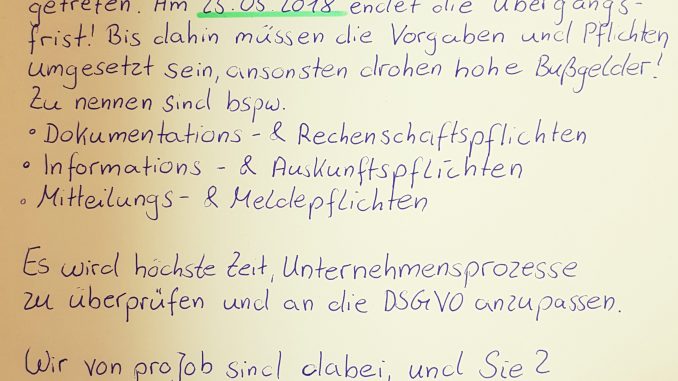 getreten. Am 25.05.2018 endet die Übergangs-
frist! Bis dahin müssen die Vorgaben und Pflichten
umgesetzt sein, ansonsten drohen hohe Bußgelder!
Zu nennen sind bspw.
• Dokumentations- & Rechenschaftspflichten
• Informations- & Auskunftspflichten
• Mitteilungs- & Meldepflichten
Es wird höchste Zeit, Unternehmensprozesse
zu überprüfen und an die DSGVO anzupassen.
Wir von proJob sind dabei, und Sie?